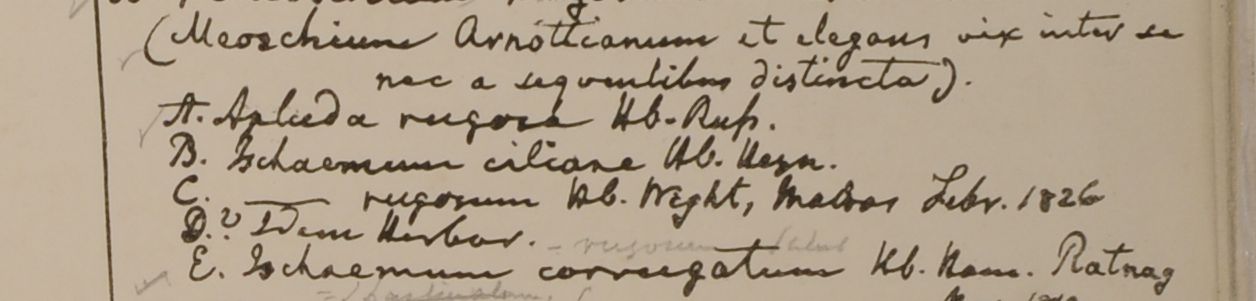 (Meoschium Arnottianum et elegans vix inter se
nec a sequentibus distincta).
A. Apluda rugosa Hb. Russ.
B. Ischaemum ciliare Hb. Heyn.
C. ——— rugosum Hb. Wight, Madras Febr. 1826
D.? Idem Herbar. - rugosum
E. Ischaemum corrugatum Hb. Ham. Ratnag